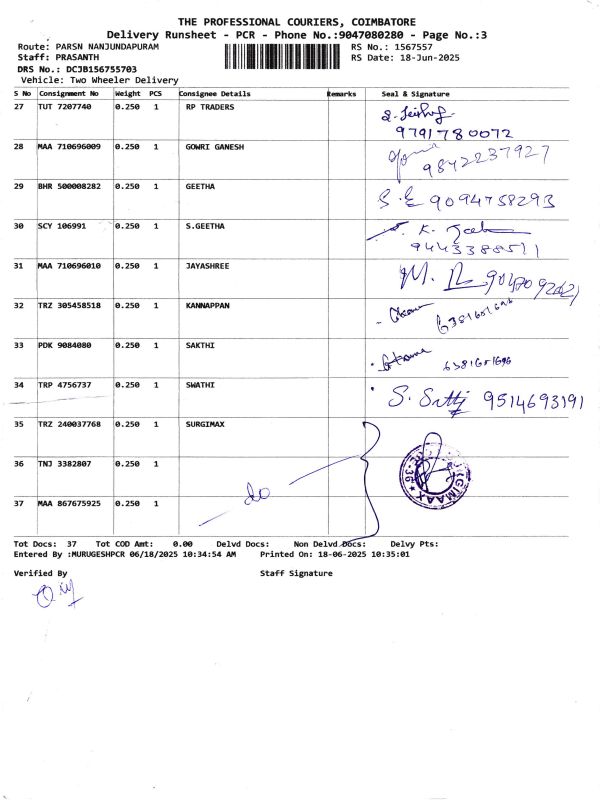 THE PROFESSIONAL COURIERS, COIMBATORE
Delivery Runsheet - PCR - Phone No.:9047080280 - Page No.:3
Route: PARSN NANJUNDAPURAM RS No.: 1567557
Staff: PRASANTH RS Date: 18-Jun-2025
DRS No.: DCJB156755703
Vehicle: Two Wheeler Delivery
S No Consignment No Weight PCS Consignee Details Remarks Seal & Signature
27 TUT 7207740 0.250 1 RP TRADERS
9791780072
28 MAA 710696009 0.250 1 GOWRI GANESH 9842237927
29 BHR 500008282 0.250 1 GEETHA 9094758293
30 SCY 106991 0.250 1 S.GEETHA K.
9443388511
31 MAA 710696010 0.250 1 JAYASHREE M.
32 TRZ 305458518 0.250 1 KANNAPPAN 6381601696
33 PDK 9084080 0.250 1 SAKTHI 6381601696
34 TRP 4756737 0.250 1 SWATHI S. 9514693191
35 TRZ 240037768 0.250 1 SURGIMAX
36 TNJ 3382807 0.250 1
do
37 MAA 867675925 0.250 1
Tot Docs: 37 Tot COD Amt: 0.00 Delvd Docs: Non Delvd Docs: Delvy Pts:
Entered By :MURUGESHPCR 06/18/2025 10:34:54 AM Printed On: 18-06-2025 10:35:01
Verified By Staff Signature